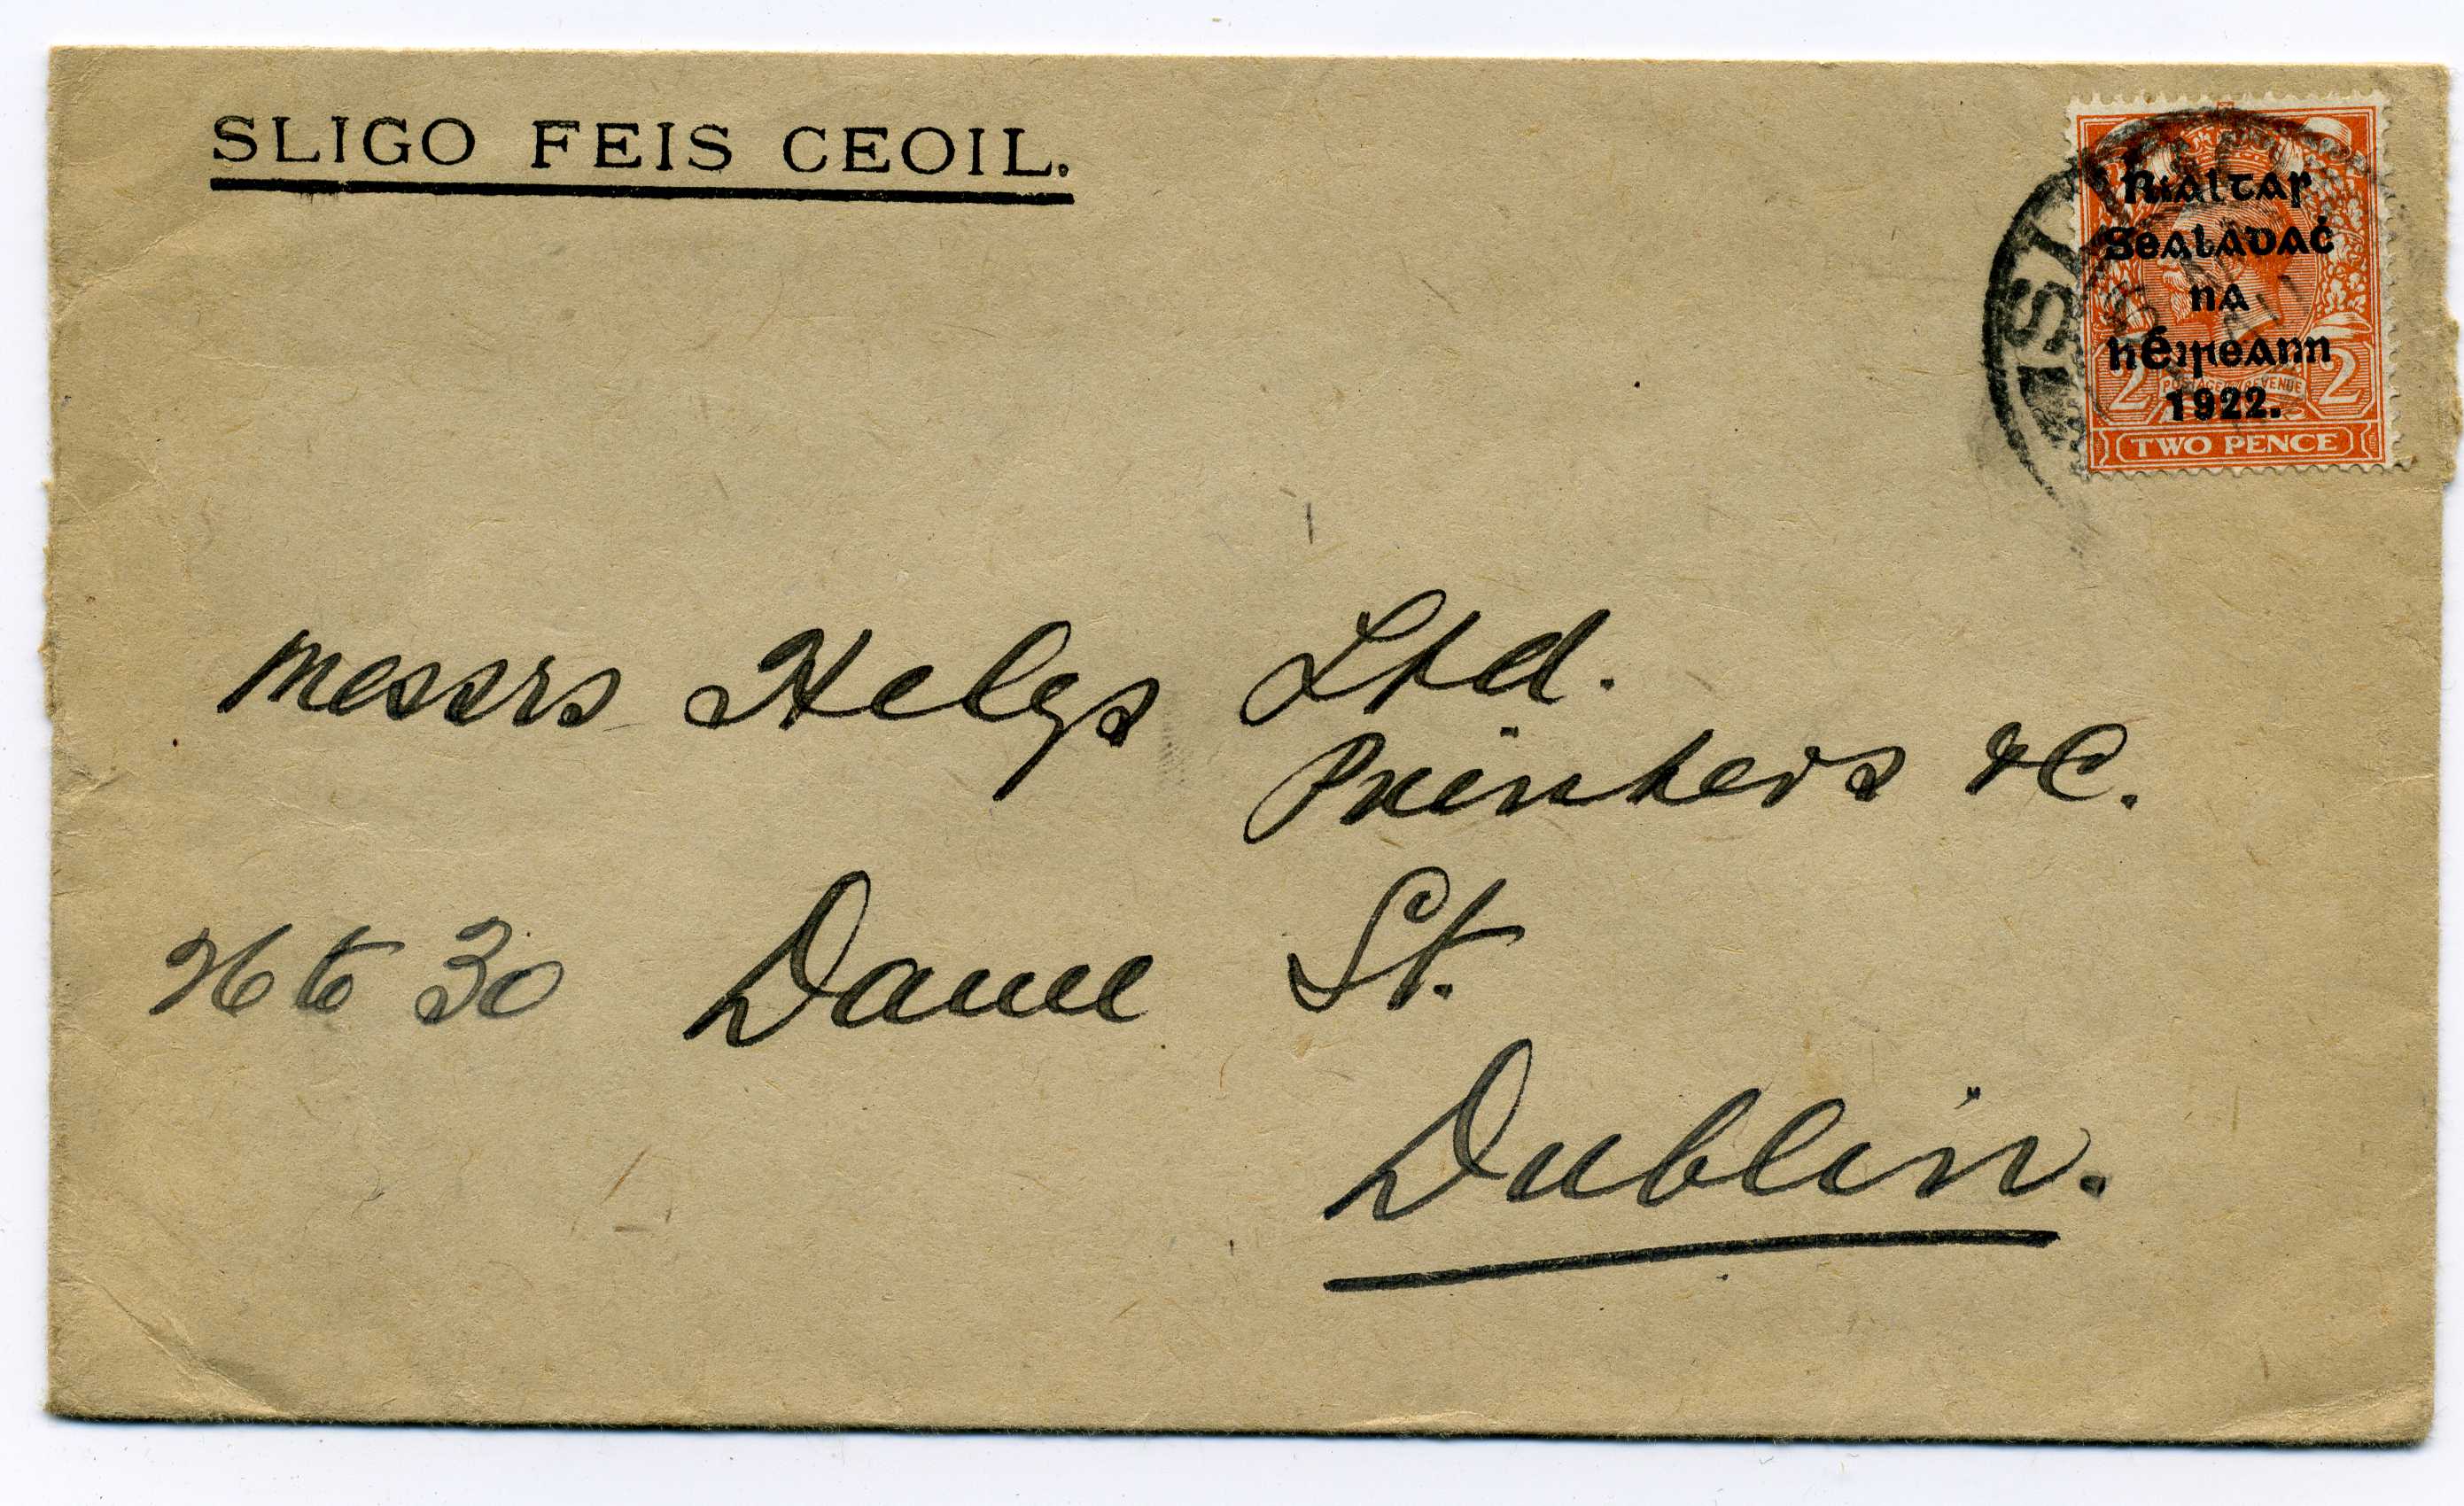 SLIGO FEIS CEOIL.
Rialtas
Sealadaċ
na
hÉireann
1922.
POSTAGE REVENUE
2 2
TWO PENCE
Messrs Helys Ltd.
Printers &C.
26 to 30 Dame St.
Dublin.